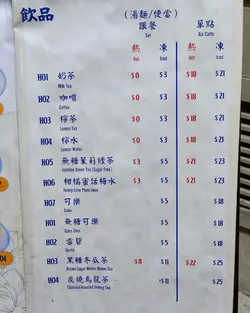 飲品
(湯麵/便當) 單點
跟餐 Ala Carte
Set
熱 凍 熱 凍
Hot Iced Hot Iced
H01 奶茶 $0 $3 $18 $21
Milk Tea
H02 咖啡 $0 $3 $18 $21
Coffee
H03 檸茶 $0 $3 $18 $21
Lemon Tea
H04 檸水 $0 $3 $18 $21
Lemon Water
H05 無糖茉莉綠茶 $0 $3 $18 $21
Jasmine Green Tea (Sugar Free)
H06 柑橘蜜話梅水 $0 $3 $18 $21
Honey Lime Plum Juice
H07 可樂 $5 $18
Coke
H01 無糖可樂 $5 $18
Coke Zero
H02 雪碧 $5 $18
Sprite
H03 黑糖冬瓜茶 $8 $11 $22 $25
Brown Sugar Winter Melon Tea
H04 炭燒烏龍茶 $11 $25
Charcoal Roasted Oolong Tea